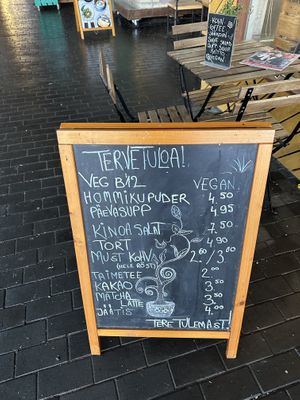 TERVETULOA!
VEG B12 VEGAN.
HOMMIKUPUDER 4.50
PÄEVASUPP 4.95
KINOA SALAT 7.50
TORT 4.90
MUST KOHV 2.60/3.00
(HELE RÖST)
TAIMETEE 2.00
KAKAO 3.50
MATCHA LATTE 3.50
JÄÄTIS 4.00
TERE TULEMAST!
KOHV
VEGAN